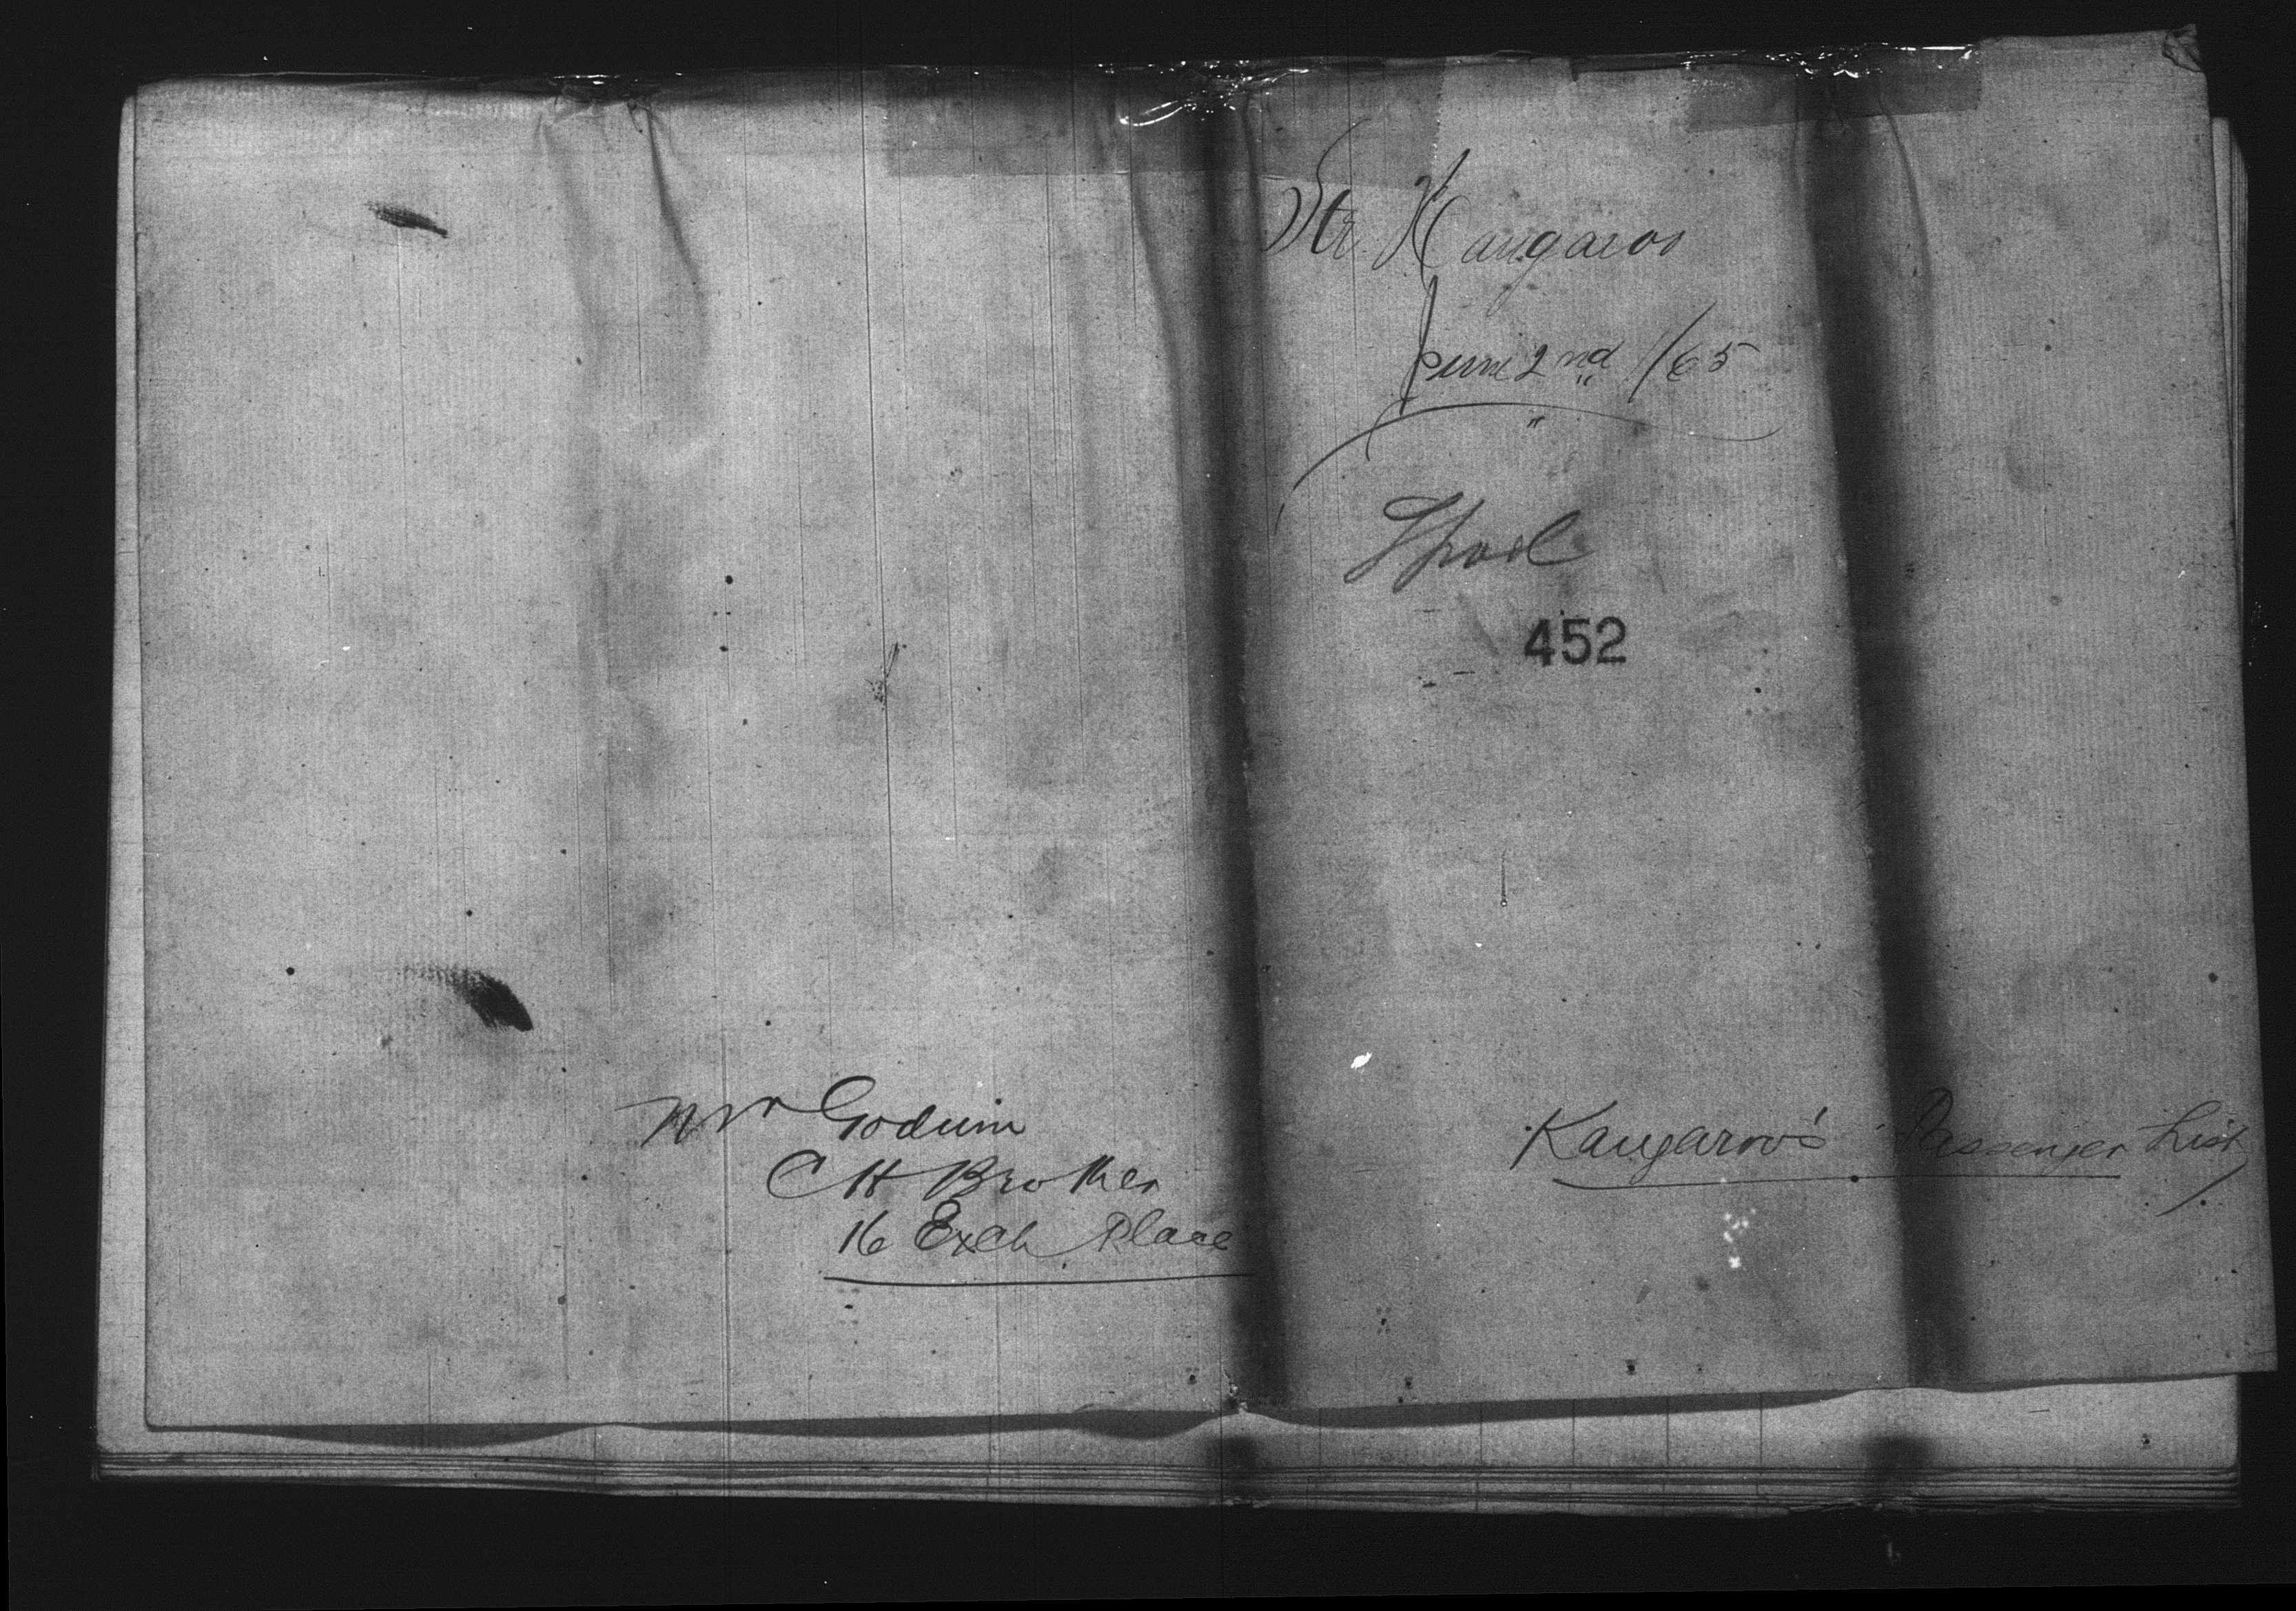 Str. Kangaroo
June 2nd /65
Lpool
452
Mr Godwin
C H Broker
16 Exch Place
Kangaroo's Passenger List